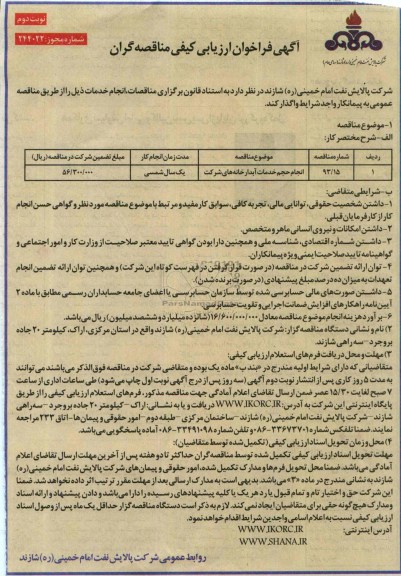 نوبت دوم
شماره مجوز: ۲۴۴۰۲۲
آگهی فراخوان ارزیابی کیفی مناقصه گران
شرکت پالایش نفت امام خمینی (ره) شازند در نظر دارد به استناد قانون برگزاری مناقصات، انجام خدمات ذیل را از طریق مناقصه
عمومی به پیمانکار واجد شرایط واگذار کند.
۱-موضوع مناقصه
الف-شرح مختصر کار:
ردیف شماره مناقصه موضوع مناقصه مدت زمان انجام کار مبلغ تضمین شرکت در مناقصه (ریال)
۱ ۹۳/۱۵ انجام حجم خدمات آبدارخانه های شرکت یک سال شمسی ۵۶/۳۰۰/۰۰۰
ب-شرایط متقاضی:
۱-داشتن شخصیت حقوقی، توانایی مالی، تجربه کافی، سوابق کار مفید و مرتبط با موضوع مناقصه مورد نظر و گواهی حسن انجام
کار از کارفرمایان قبلی.
۲-داشتن امکانات و نیروی انسانی ماهر و متخصص.
۳-داشتن شماره اقتصادی، شناسه ملی و همچنین دارا بودن گواهی تایید معتبر صلاحیت از وزارت کار و امور اجتماعی و
گواهینامه تایید صلاحیت ایمنی ویژه پیمانکاران.
۴-توان ارائه تضمین شرکت در مناقصه (در صورت قرار گرفتن در فهرست کوتاه این شرکت) و همچنین توان ارائه تضمین انجام
تعهدات به میزان ده درصد مبلغ پیشنهادی (در صورت برنده شدن).
۵-داشتن صورت های مالی حسابرسی شده توسط سازمان حسابرسی یا اعضای جامعه حسابداران رسمی مطابق با ماده ۲
آیین نامه راهکارهای افزایش ضمانت اجرایی و تقویت حسابرسی.
۶-برآورد هزینه انجام موضوع مناقصه معادل ۱۶/۶۰۰/۰۰۰/۰۰۰ (شانزده میلیارد و ششصد میلیون) ریال می باشد.
۲) نام و نشانی دستگاه مناقصه گزار: شرکت پالایش نفت امام خمینی (ره) شازند واقع در استان مرکزی، اراک، کیلومتر ۲۰ جاده
بروجرد-سه راهی شازند.
۳) مهلت و محل دریافت فرم های استعلام ارزیابی کیفی:
متقاضیانی که دارای شرایط اولیه مندرج در «بند ب» ماده یک بوده و متقاضی شرکت در مناقصه فوق الذکر می باشند می توانند
به مدت ۵ روز کاری پس از انتشار نوبت دوم آگهی (سه روز پس از درج آگهی نوبت اول چاپ می شود) طی ساعات اداری از ساعت
۷ صبح لغایت ۱۵/۳۰ عصر ضمن ارسال تقاضای اعلام آمادگی جهت مناقصه مذکور، فرم های استعلام ارزیابی کیفی را از طریق
پایگاه اینترنتی این شرکت به آدرس: WWW.IKORC.IR دریافت و یا به نشانی: اراک-کیلومتر ۲۰ جاده بروجرد-سه راهی
شازند-شرکت پالایش نفت امام خمینی (ره) شازند-ساختمان مرکزی-طبقه دوم-امور حقوقی و پیمان ها-اتاق ۲۳۳ مراجعه
نمایند. ضمنا تلفکس شماره ۳۳۶۷۳۷۰۱-۰۸۶ و تلفن شماره ۳۳۴۹۱۰۹۸-۰۸۶ آماده پاسخگویی می باشد.
۴) محل و زمان تحویل اسناد ارزیابی کیفی (تکمیل شده توسط متقاضیان):
مهلت تحویل اسناد ارزیابی کیفی تکمیل شده توسط مناقصه گران حداکثر تا دو هفته پس از آخرین مهلت ارسال تقاضای اعلام
آمادگی می باشد. ضمنا محل تحویل فرم ها و مدارک تکمیل شده، امور حقوقی و پیمان های شرکت پالایش نفت امام خمینی (ره)
شازند به نشانی مندرج در ماده «۳» می باشد. بدیهی است به مدارک ارسالی بعد از مهلت مقرر ترتیب اثر داده نخواهد شد. ضمنا
این شرکت حق و اختیار تام و تمام قبول یا رد هر یک یا کلیه پیشنهادهای رسیده را دارا می باشد و دادن پیشنهاد و ارائه اسناد
و مدارک هیچ گونه حقی برای متقاضیان ایجاد نمی کند. لازم به ذکر است دستگاه مناقصه گزار حداقل یک ماه پس از وصول اسناد
ارزیابی کیفی نسبت به اعلام اسامی واجدین شرایط اقدام خواهد نمود.
آدرس اینترنتی: WWW.IKORC.IR
WWW.SHANA.IR
روابط عمومی شرکت پالایش نفت امام خمینی (ره) شازند